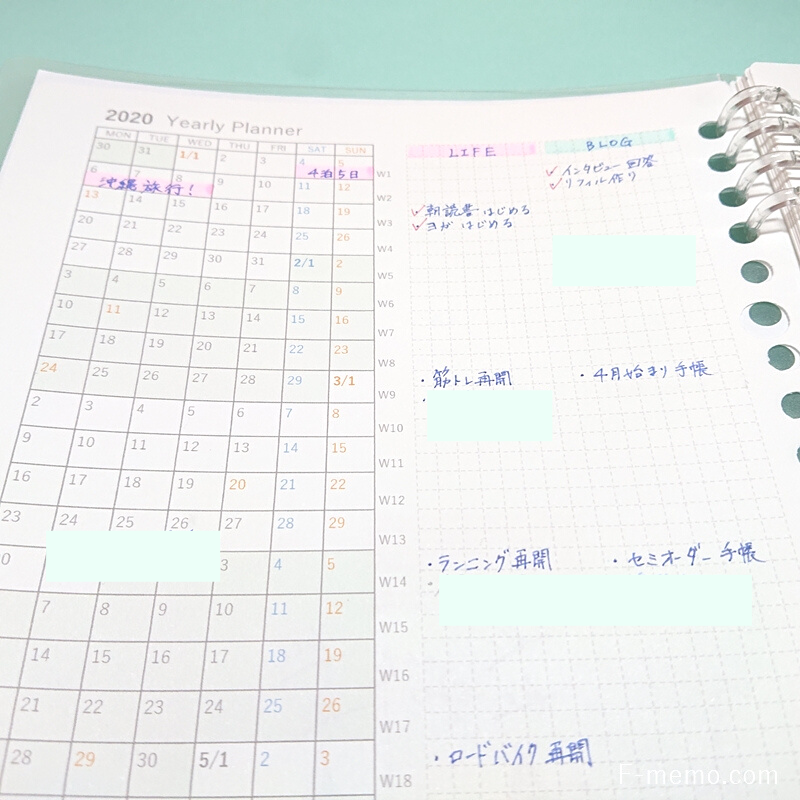 2020 Yearly Planner
MON TUE WED THU FRI SAT SUN
LIFE BLOG
30 31 1/1 2 3 4 5 W1
4泊5日
インタビュー回答
リフィル作り
6 7 8 9 10 11 12 W2
沖縄旅行!
13 14 15 16 17 18 19 W3
朝読書はじめる
ヨガはじめる
20 21 22 23 24 25 26 W4
27 28 29 30 31 2/1 2 W5
3 4 5 6 7 8 9 W6
10 11 12 13 14 15 16 W7
17 18 19 20 21 22 23 W8
24 25 26 27 28 29 3/1 W9
・筋トレ再開 ・4月始まり手帳
2 3 4 5 6 7 8 W10
9 10 11 12 13 14 15 W11
16 17 18 19 20 21 22 W12
23 24 25 26 27 28 29 W13
・ランニング再開 ・セミオーダー手帳
0 3 4 5 W14
7 8 9 10 11 12 W15
14 15 16 17 18 19 W16
21 22 23 24 25 26 W17
28 29 30 5/1 2 3 W18
・ロードバイク再開
F-memo.com